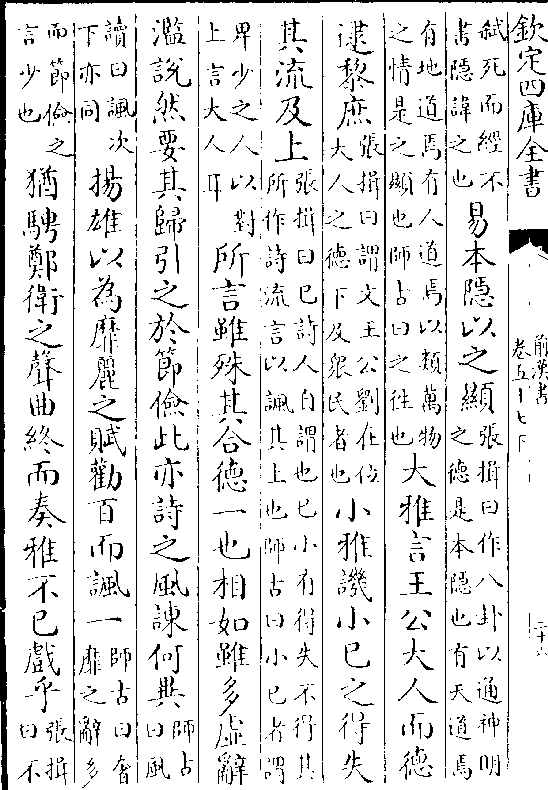 欽定四庫全書
前漢書
卷五十七下
二十六
弑死而經不
書隱諱之也
易本隱以之顯
張揖曰作八卦以通神明
之德是本隱也有天道焉
有地道焉有人道焉以類萬物
之情是之顯也師古曰之往也
大雅言王公大人而德
逮黎庶
張揖曰謂文王公劉在位
大人之德下及衆民者也
小雅譏小己之得失
其流及上
張揖曰己詩人自謂也己小有得失不得其
所作詩流言以諷其上也師古曰小己者謂
卑少之人以對
上言大人耳
所言雖殊其合德一也相如雖多虛辭
濫說然要其歸引之於節儉此亦詩之風諫何異
師古
曰風
讀曰諷次
下亦同
揚雄以為靡麗之賦勸百而諷一
師古曰奢
靡之辭多
而節儉之
言少也
猶騁鄭衛之聲曲終而奏雅不已戲乎
張揖
曰不